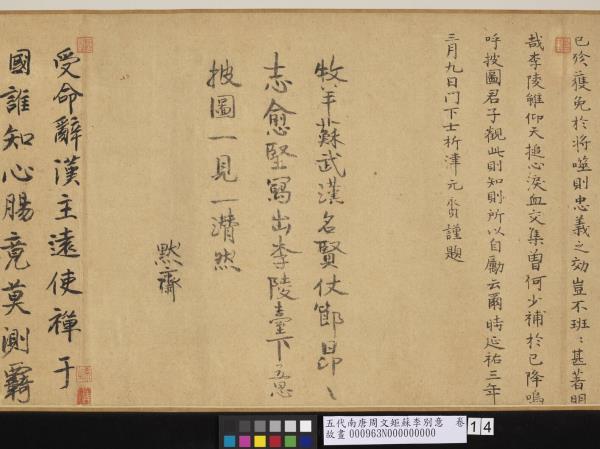 已於獲免於將噬則忠義之効豈不班〻甚著明
哉李陵雖仰天搥心淚血交集曾何少補於已降嗚
呼披圖君子觀此則知則所以自勵云爾時延祐三年
三月九日門下士析津元賓謹題
牧羊蘇武漢名賢仗節昂〻
志愈堅寫出李陵臺下思
披圖一見一潸然
黙齋
受命辭漢主遠使禪于
國誰知心腸竟莫測覊
五代南唐周文矩蘇李別意 卷
故畫 000963N000000000
14